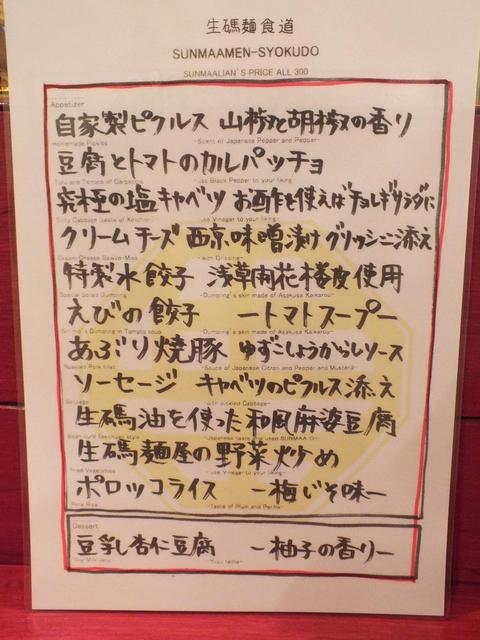 生碼麵食道
SUNMAAMEN-SYOKUDO
SUNMAALIAN'S PRICE ALL 300
Appetizer
自家製ピクルス 山椒と胡椒の香り
Homemade Pickles -Scent of Japanese Pepper and Pepper-
豆腐とトマトのカルパッチョ
Tofu and Tomato of Carpaccio -use Black Pepper to your liking-
究極の塩キャベツ お酢を使えばチョレギサラダに
Salty Cabbage -use Vinegar to your liking-
クリームチーズ 西京味噌漬け グリッシーニ添え
Cream Cheese Saikyo-Miso
特製水餃子 浅草開花楼皮使用
Special Boiled Dumpling -Dumpling's skin made of Asakusa Kaikarou-
えびの餃子 ートマトスープー
Dumpling in Tomato soup -Dumpling's skin made of Asakusa Kaikarou-
あぶり焼豚 ゆずこしょうからしソース
Roasted Pork fillet -Sauce of Japanese Citron and Pepper and Mustard-
ソーセージ キャベツのピクルス添え
Sausage -with pickled Cabbage-
生碼油を使った和風麻婆豆腐
生碼麵屋の野菜炒め
Fried Vegetables -use Vinegar to your liking-
ポロッコライス ー梅じそ味ー
-Taste of Plum and Perilla-
Dessert
豆乳し杏仁豆腐 ー柚子の香りー